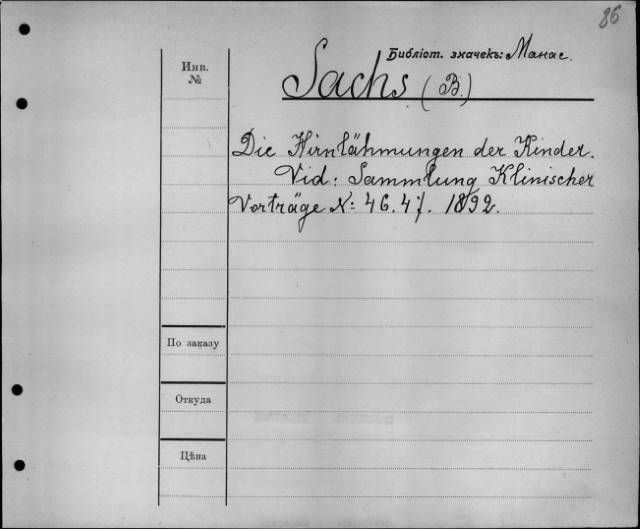 86
Библіот. значекъ: Манас.
Инв.
№
Sachs (B.)
Die Hirnlähmungen der Kinder.
Vid: Sammlung Klinischer
Vorträge N: 46.47. 1892.
По заказу
Откуда
Цѣна